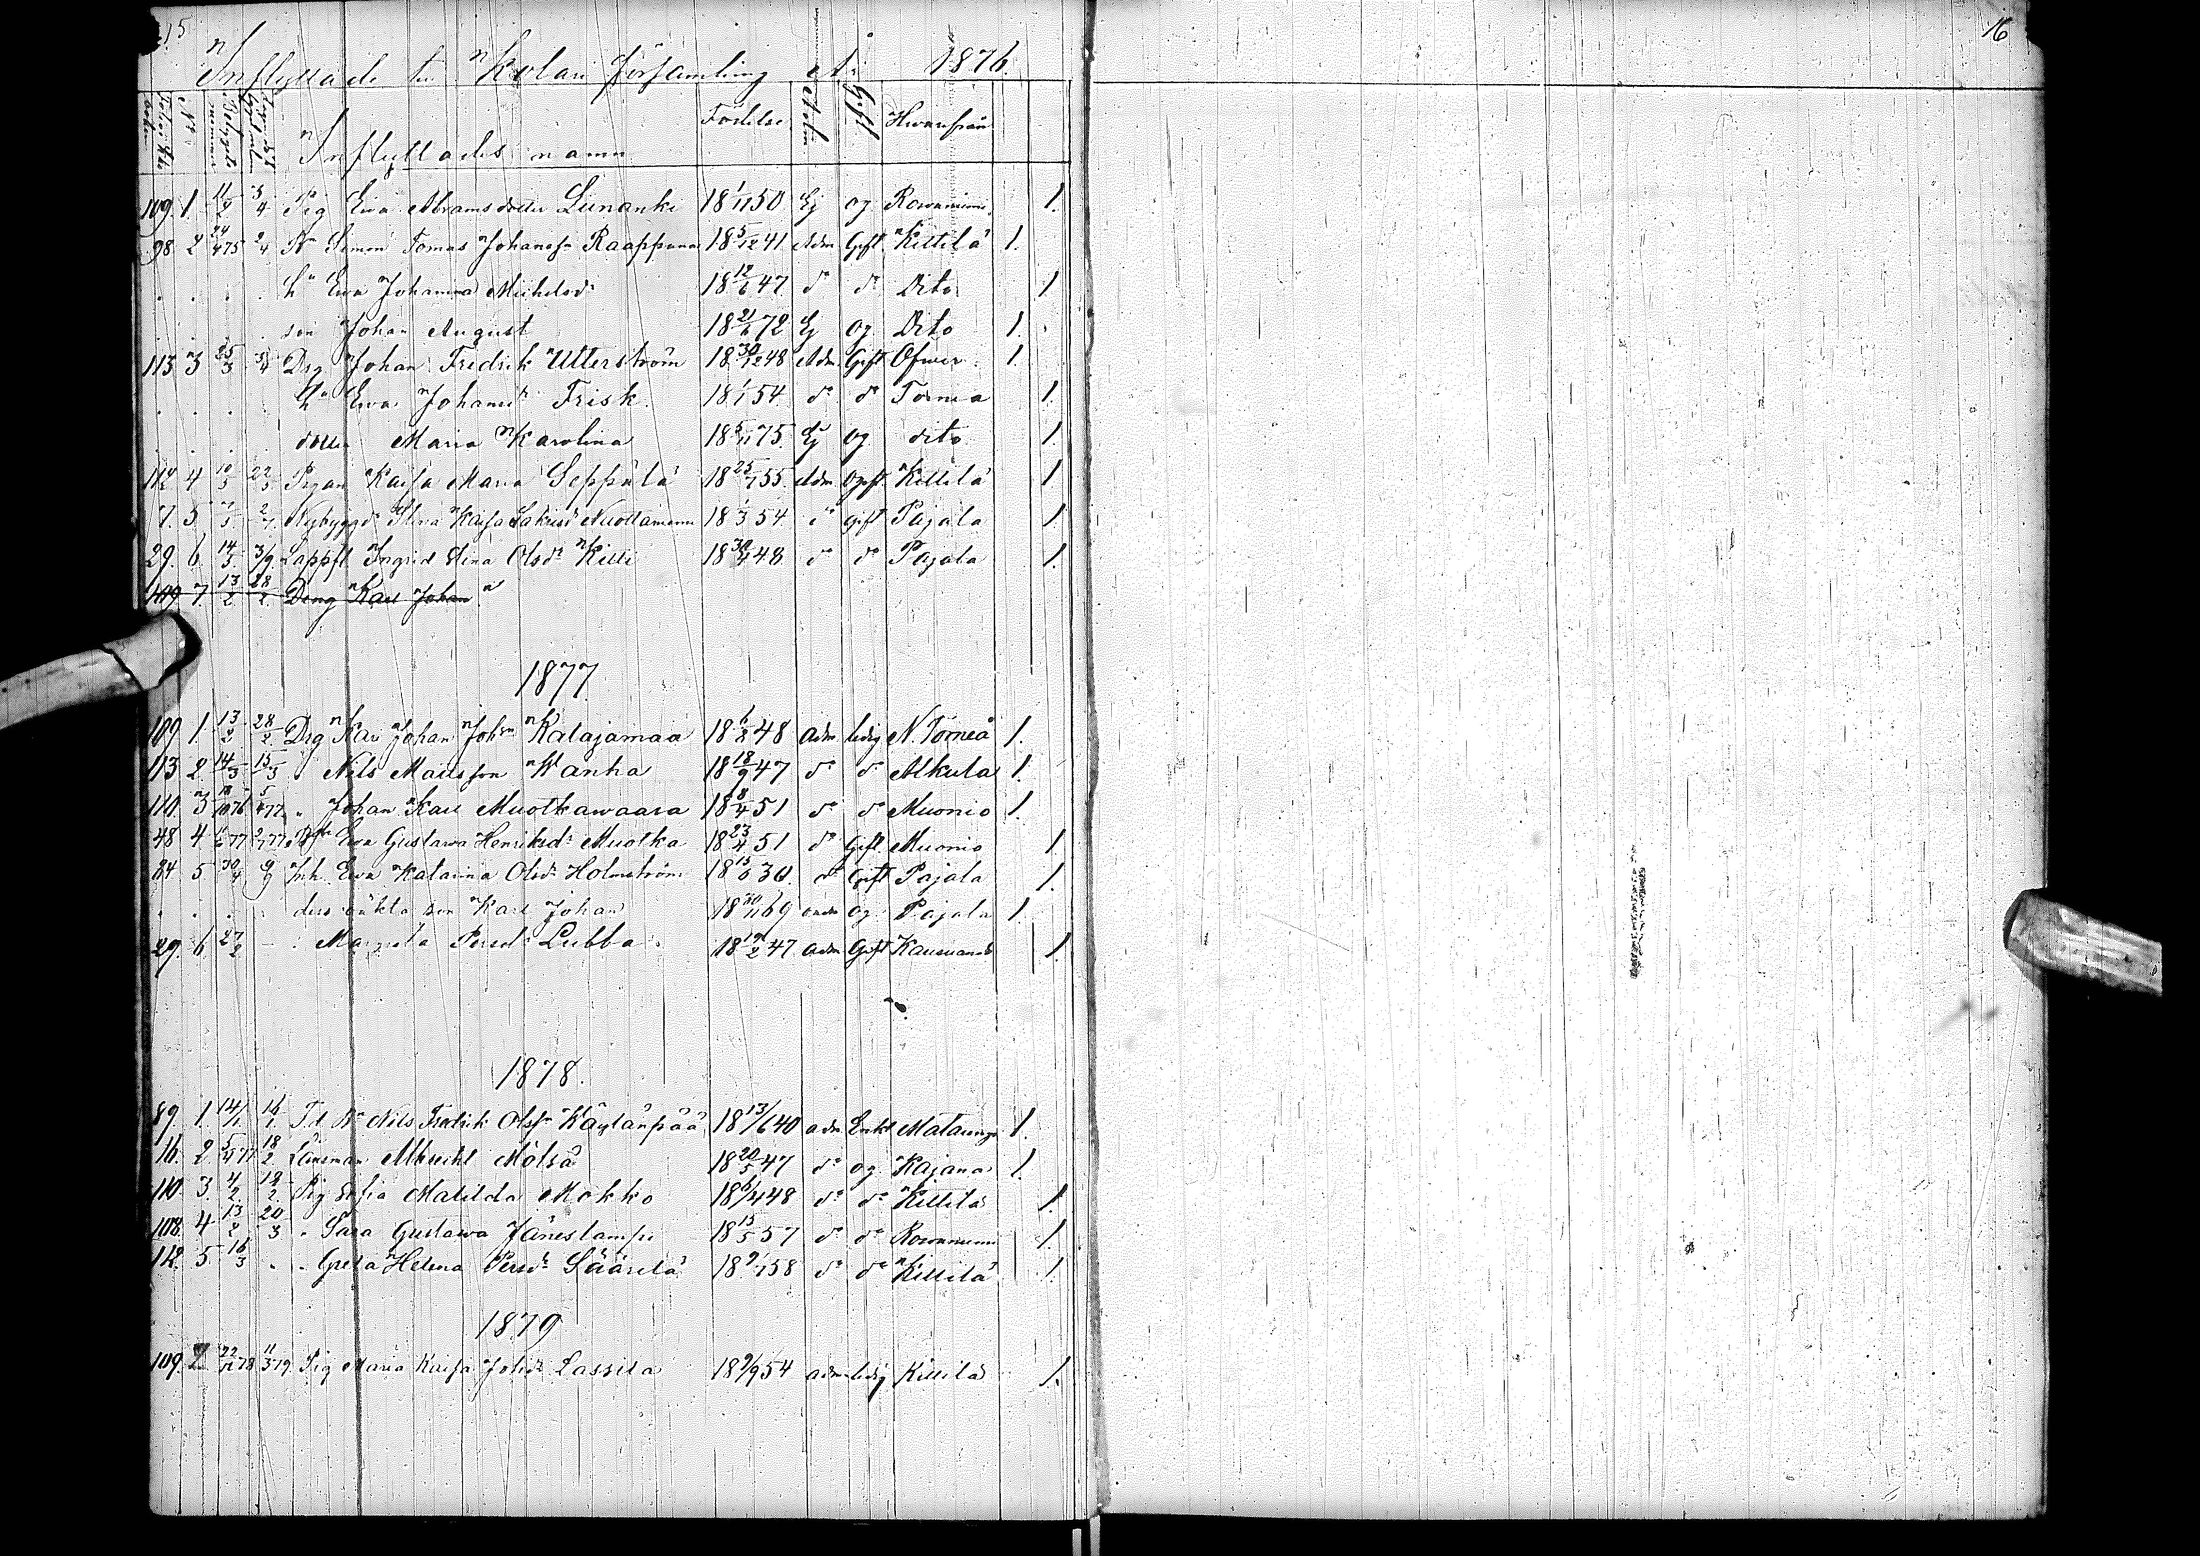 15
16
Inflyttade till Kolari församling År 1876.
Inflyttades namn Födelse Gift Hwarifrån
109. 1. 11/2 3/4 Pig Ewa Abramsdotter Liinanki 18 1/11 50 Ej og Rowaniemi 1.
98 2 24/4 75 2/4 Simon Tomas Johanss. Raappana 18 5/12 41 Adm Gift Kittilä 1.
hu Ewa Johanna Michelsdr 18 12/6 47 do do Dito 1
son Johan August 18 21/6 72 Ej og Dito 1.
113 3 25/3 3/4 Drg Johan Fredrik Utterström 18 30/12 48 Adm. Gift Öfver 1.
hu Ewa Johansdr Frisk. 18 1/1 54 do do Torneå 1.
dotter Maria Karolina 18 5/11 75. Ej og dito 1.
112 4 10/3 22/3 Pigan Kaisa Maria Seppälä 18 25/7 55. Adm Ogift. Kittilä 1
17. 5. Nybyggd. Stina Kaisa Nuottamann 18 1/3 54. do gift Pajala 1.
29. 6. 14/3 3/9 Lappfl Ingrid Stina Olsdr Kitti 18 30/4 48. do do Pajala 1.
109 7. 13/2 28/2. Dreng Karl Johan
1877
109. 1. 13/2. 28/2. Drg Karl Johan Johsson Katajamaa 18 6/8 48 adm ledig N. Torneå 1.
113 2 14/3 15/5 " Nils Matisson Wanha 18 18/9 47 do do Alkula 1.
110. 3 18/10 76 5/4 77 " Johan Karl Muotkawaara 18 8/4 51 do do Muonio 1.
48 4 Ewa Gustawa Henriksdr Muotka 18 23/4 51 do Gift. Muonio 1
84 5 30/4 9/9 Inh. Ewa Katarina Olsdr Holmström 18 15/6 30. do Gift Pajala 1.
dess oäkta son Karl Johan 18 30/11 69 og. Pajala 1.
29. 6 27/2 Margreta Persdr Lubba. 18 19/2 47 adm Gift Karesuando 1.
1878.
89. 1. 14/1. 16/1. Nils Fredrik Olss. Käylänpää 18 13/6 40 adm. Enkl Matarengi 1.
16. 2. 5/4 77 18/2 Länsman Albrecht Mölsä 18 20/5 47 do og. Kajana 1.
110. 3. 4/2. 19/2. Pig Sofia Matilda Mokko 18 6/4 48 do do Kittilä 1.
108. 4 13/2 20/3 " Sara Gustawa Jäneslampi 18 15/5 57 do do Rowaniemi 1.
112. 5. 16/3 " " Greta Helena Persdr Säärelä 18 9/1 58 do do Kittilä 1.
1879
109. 2 22/12 78 11/3 79. Pig Maria Kaisa Johsdr Lassila 18 9/9 54 adm ledig Kittilä 1.